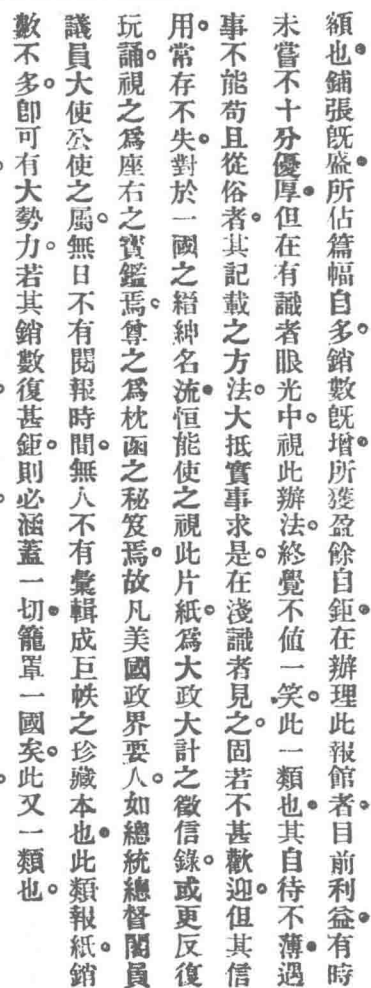 額也鋪張旣盛所佔篇幅自多銷數旣增所獲盈餘自鉅在辦理此報館者目前利益有時
未嘗不十分優厚但在有識者眼光中視此辦法終覺不値一笑此一類也其自待不薄遇
事不能苟且從俗者其記載之方法大抵實事求是在淺識者見之固若不甚歡迎但其信
用常存不失對於一國之縉紳名流恒能使之視此片紙爲大政大計之徵信錄或更反復
玩誦視之爲座右之寳鑑焉尊之爲枕函之秘笈焉故凡美國政界要人如總統總督閣員
議員大使公使之屬無日不有閱報時間無人不有彙輯成巨帙之珍藏本也此類報紙銷
數不多卽可有大勢力若其銷數復甚鉅則必涵蓋一切籠罩一國矣此又一類也